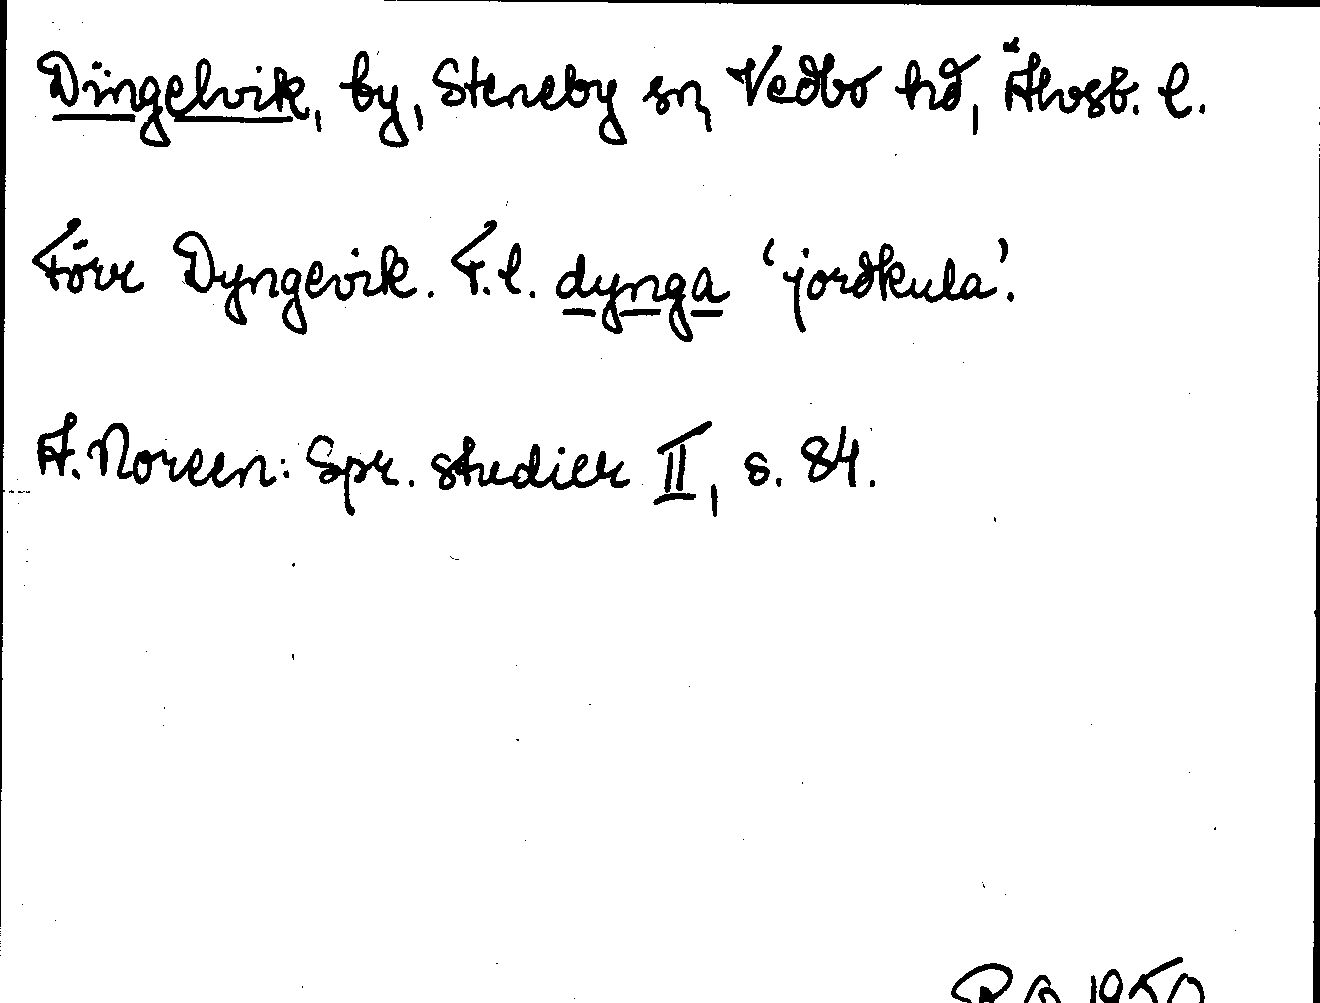 Dingelvik, by, Steneby sn, Vedbo hd, Älvsb. l.
Förr Dyngevik. T.l. dynga 'jordkula'.
A. Noreen: Spr. studier II, s. 84.
1950